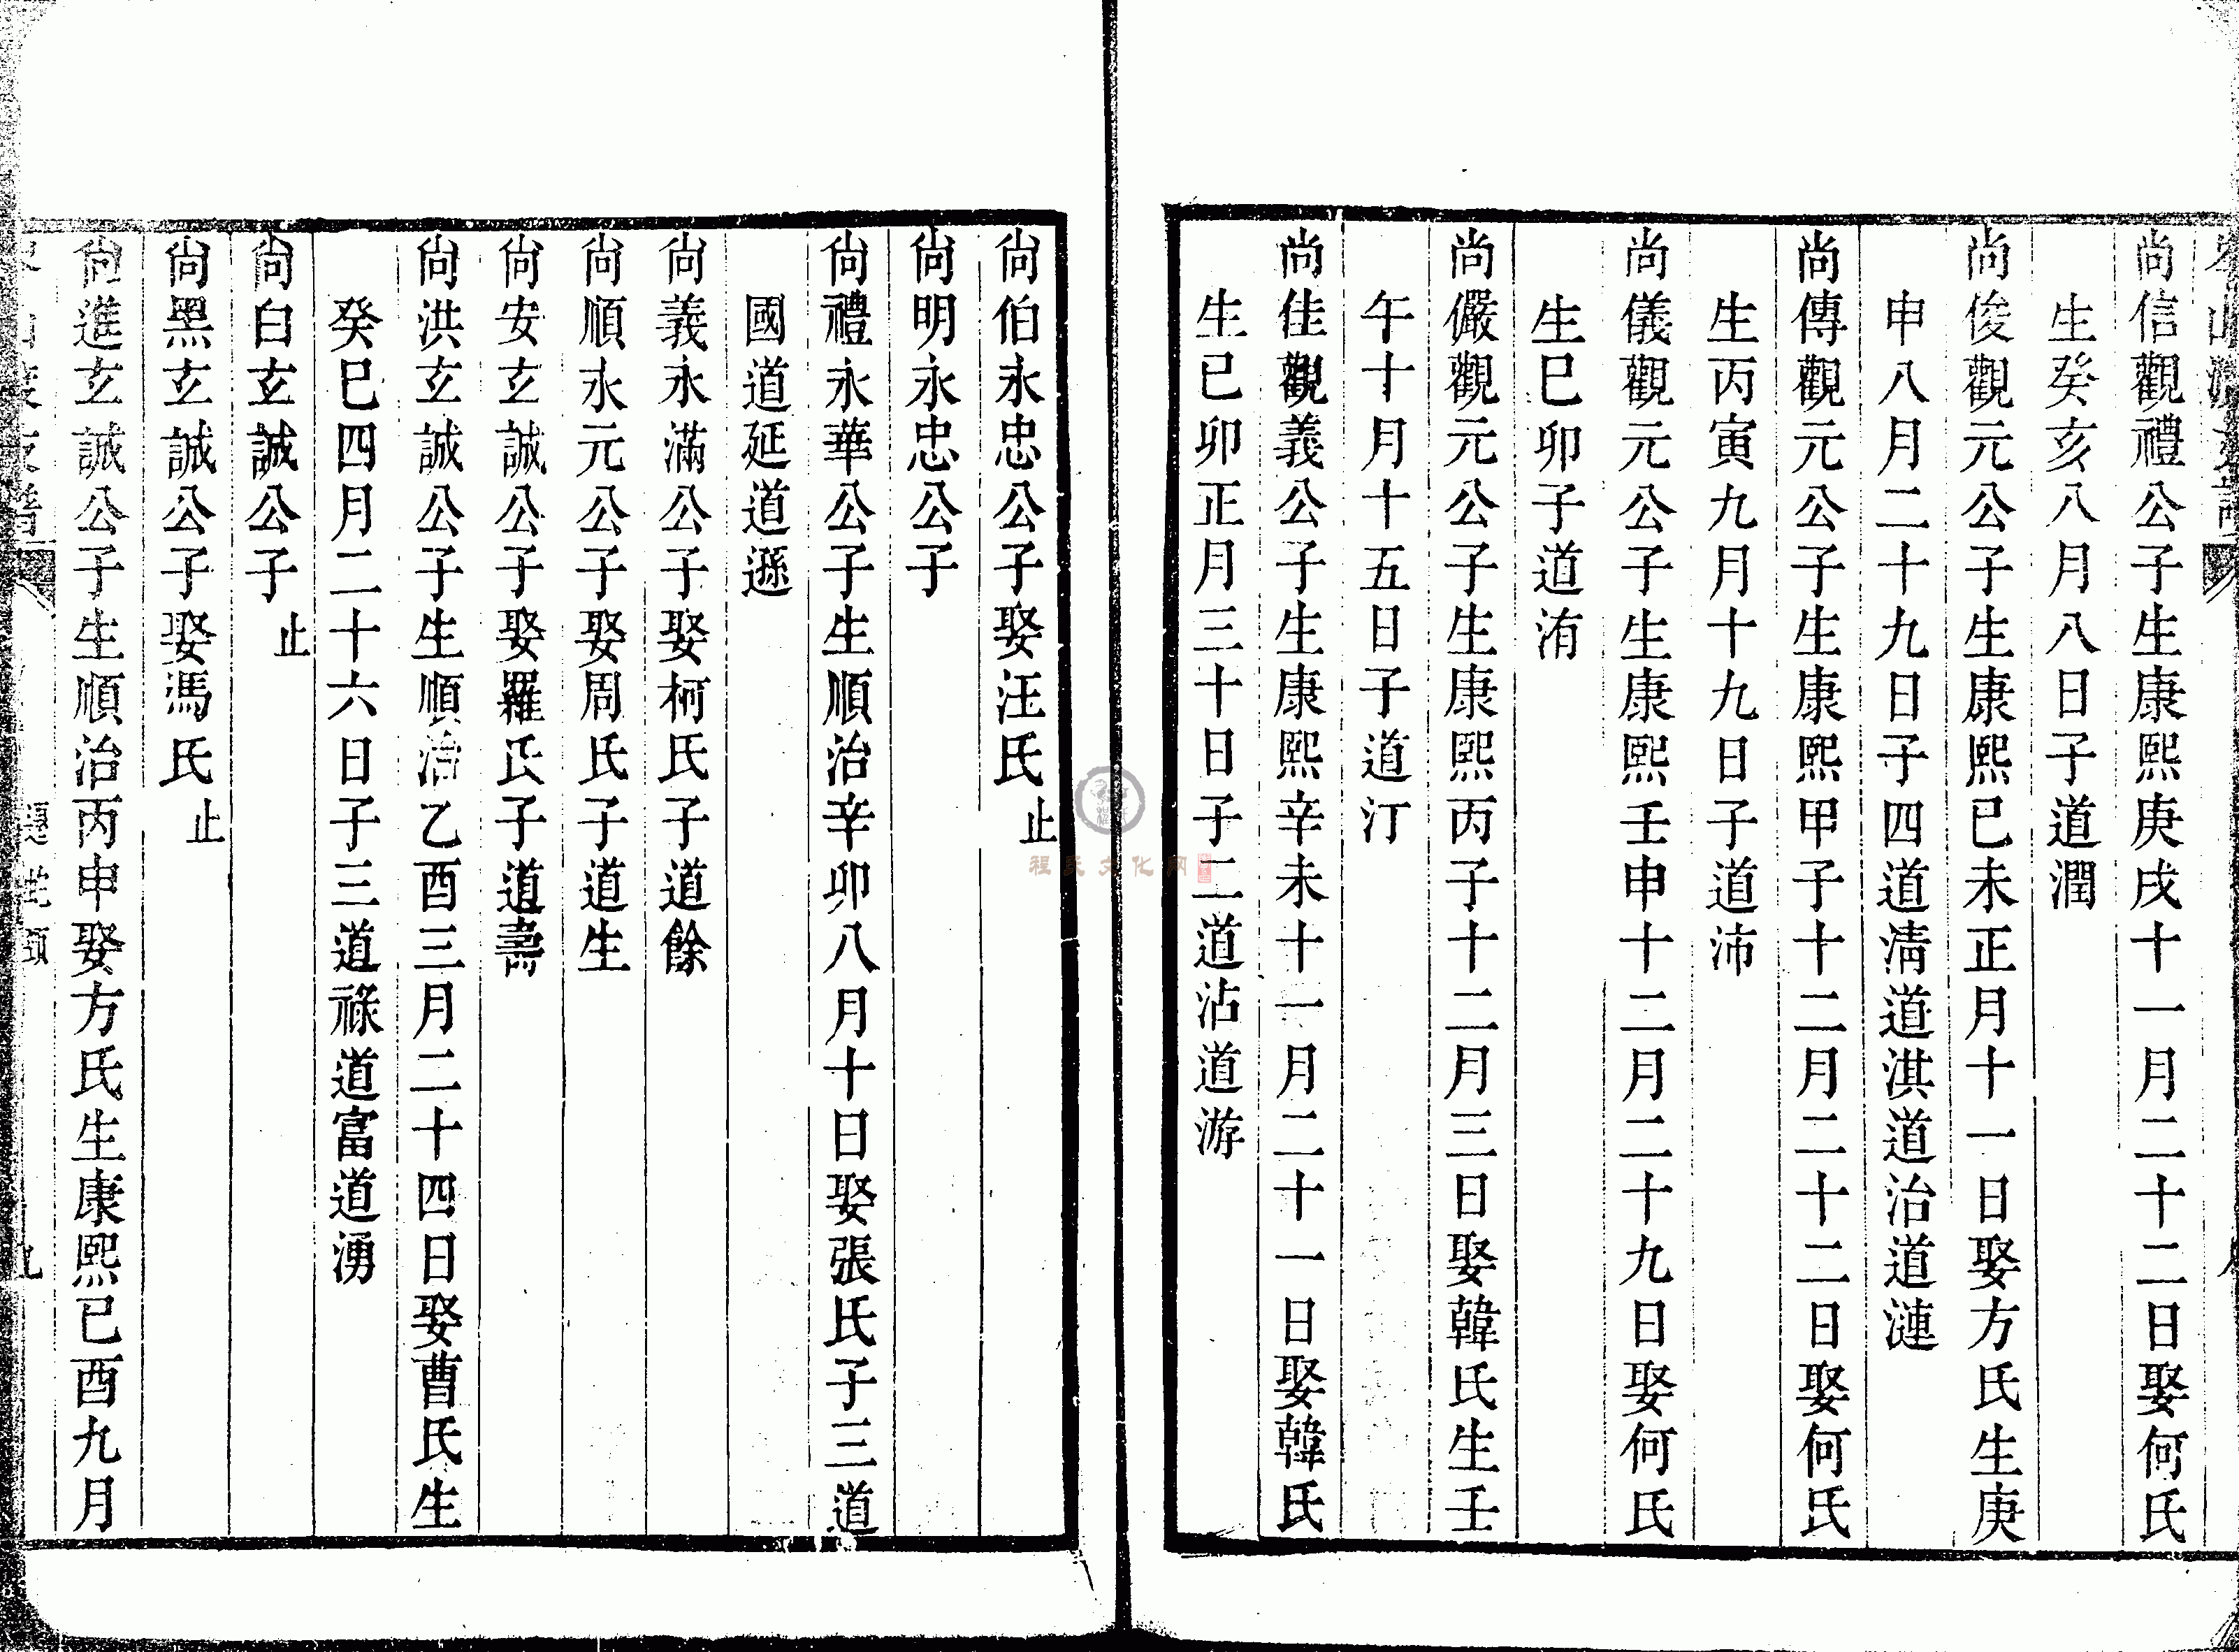 尚信觀禮公子生康熙庚戌十一月二十二日娶何氏
生癸亥八月八日子道潤
尚俊觀元公子生康熙己未正月十一日娶方氏生庚
申八月二十九日子四道淸道淇道治道漣
尚傳觀元公子生康熙甲子十二月二十二日娶何氏
生丙寅九月十九日子道沛
尚儀觀元公子生康熙壬申十二月二十九日娶何氏
生巳卯子道洧
尚儼觀元公子生康熙丙子十二月三日娶韓氏生壬
午十月十五日子道汀
尚佳觀義公子生康熙辛未十一月二十一日娶韓氏
生己卯正月三十日子二道沾道游
尚伯永忠公子娶汪氏止
尚明永忠公子
尚禮永華公子生順治辛卯八月十日娶張氏子三道
國道延道遜
尚義永滿公子娶柯氏子道餘
尚順永元公子娶周氏子道生
尚安玄誠公子娶羅氏子道壽
尚洪玄誠公子生順治乙酉三月二十四日娶曹氏生
癸巳四月二十六日子三道祿道富道湧
尚白玄誠公子止
尚黑玄誠公子娶馮氏止
尚進玄誠公子生順治丙申娶方氏生康熙已酉九月
程氏文化网